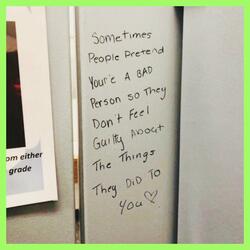 Sometimes
People Pretend
You're A BAD
Person so They
Don't Feel
Guilty About
The Things
They Did To
You ♡
om either
grade